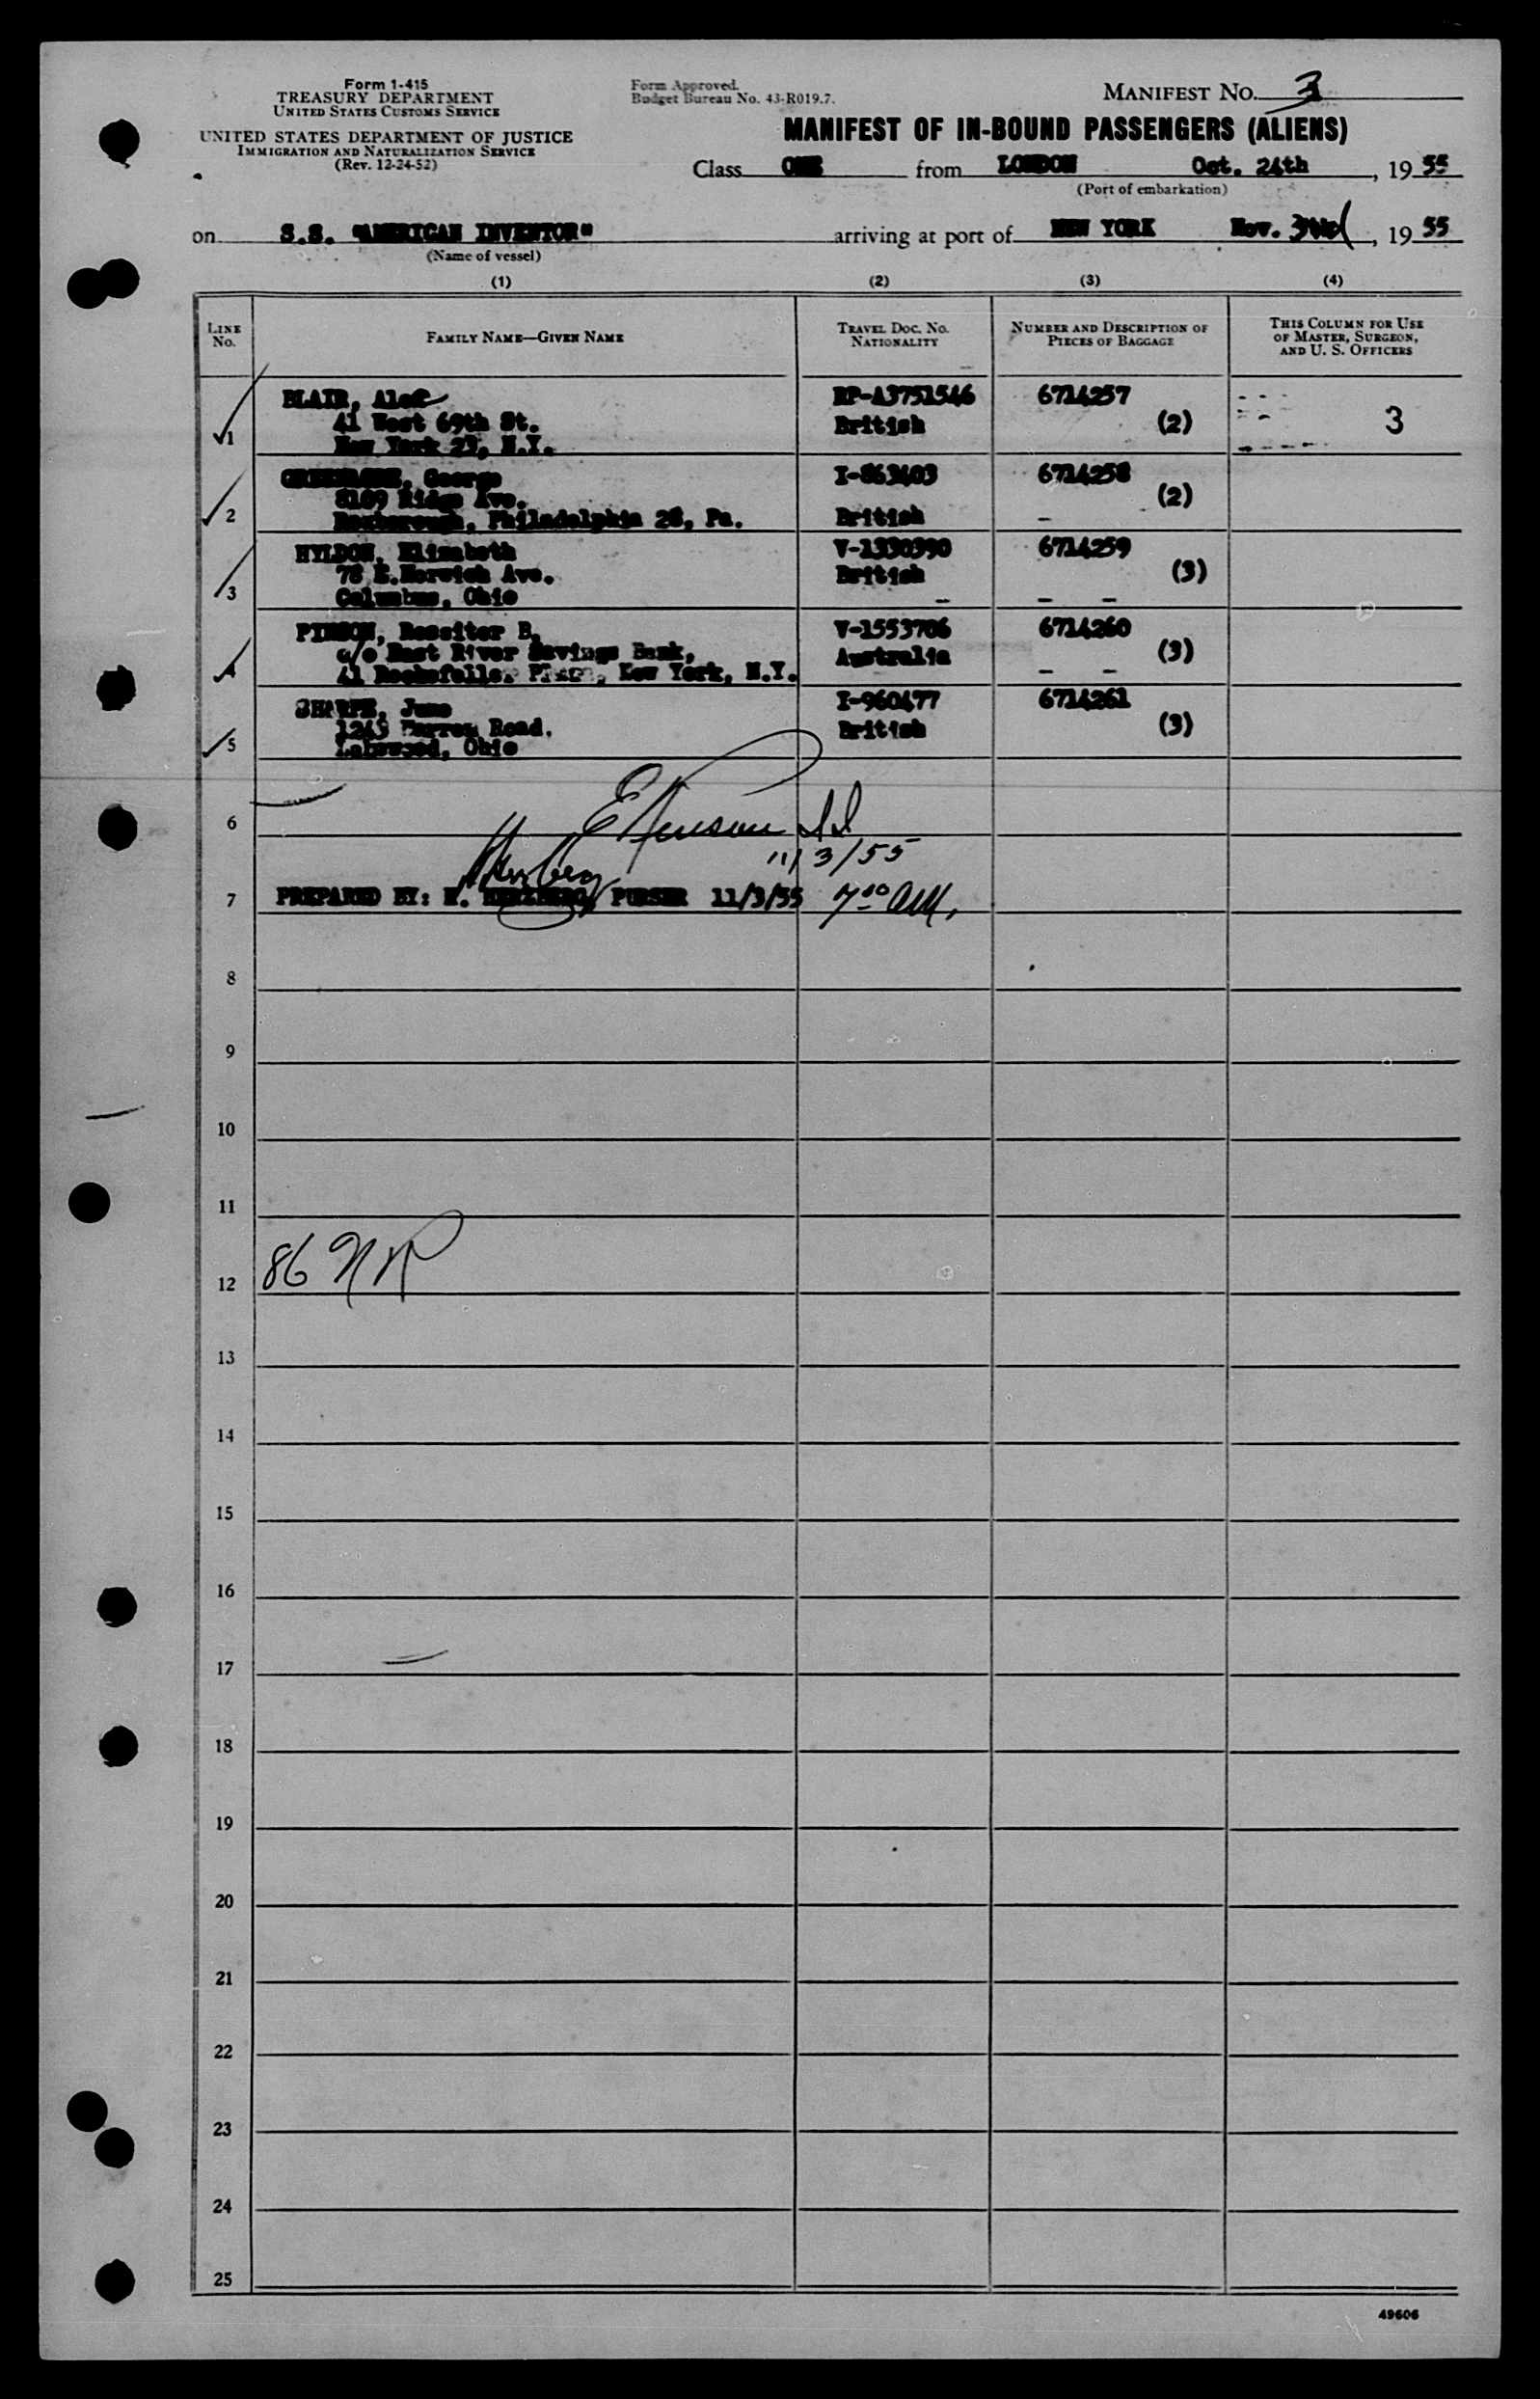 Form I-415
TREASURY DEPARTMENT
UNITED STATES CUSTOMS SERVICE
UNITED STATES DEPARTMENT OF JUSTICE
IMMIGRATION AND NATURALIZATION SERVICE
(Rev. 12-24-52)
Form Approved.
Budget Bureau No. 43-R019.7.
MANIFEST NO. 3
MANIFEST OF IN-BOUND PASSENGERS (ALIENS)
Class ONE from LONDON Oct. 24th, 1955
(Port of embarkation)
on S.S. "AMERICAN INVENTOR" arriving at port of NEW YORK Nov. 3rd, 1955
(Name of vessel)
(1) (2) (3) (4)
LINE No. FAMILY NAME—GIVEN NAME TRAVEL DOC. NO. NATIONALITY NUMBER AND DESCRIPTION OF PIECES OF BAGGAGE THIS COLUMN FOR USE OF MASTER, SURGEON, AND U. S. OFFICERS
BLAIR, Alec RP-A3751546 6714257
41 West 69th St. British (2) 3
1 New York 23, N.Y.
George I-863403 6714258
8109 Ridge Ave. (2)
2 Roxborough, Philadelphia 28, Pa. British
HYLDON, Elizabeth V-1330390 6714259
78 E. Norwich Ave. British (3)
3 Columbus, Ohio
Rossiter B. V-1553706 6714260
c/o East River Savings Bank, Australia (3)
4 41 Rockefeller Plaza, New York, N.Y.
SHARPE, June I-960477 6714261
Road. British (3)
5 Lakewood, Ohio
6
11/3/55
7 PREPARED BY: H. HERZBERG, PURSER 11/3/55 7:00 AM.
8
9
10
11
12 86
13
14
15
16
17
18
19
20
21
22
23
24
25
49606